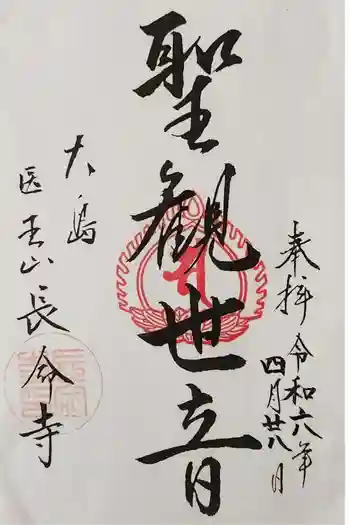 奉拝
令和六年
四月廿八日
聖観世音
大島
医王山長命寺